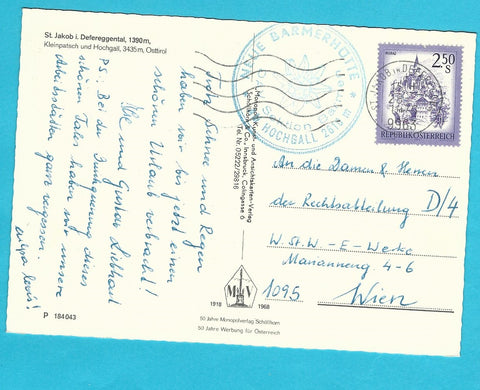 St. Jakob i. Defereggental, 1390 m,
Kleinpatsch und Hochgall, 3435 m, Osttirol
Trotz Schnee und Regen
haben wir bis jetzt einen
schönen Urlaub verbracht!
Ilse und Gustav
PS: Bei der Durchquerung dieses
schönen Tales haben wir unsere
Arbeitsstätten ganz vergessen.
P 184043
Monopol Kunst- und Ansichtskarten-Verlag
Schöllhorn & Co., Innsbruck, Cölingasse 6
Tel. Nr. 05222/28818
1918 MV 1968
50 Jahre Monopolverlag Schöllhorn
50 Jahre Werbung für Österreich
NEUE BARMERHÜTTE
HOCHGALL
ST. JAKOB IN
9963
2.50
S
REPUBLIK ÖSTERREICH
An die Damen & Herren
der Rechtsabteilung D/4
W. St. W. - E - Werke
Marianneng 4-6
1095 Wien